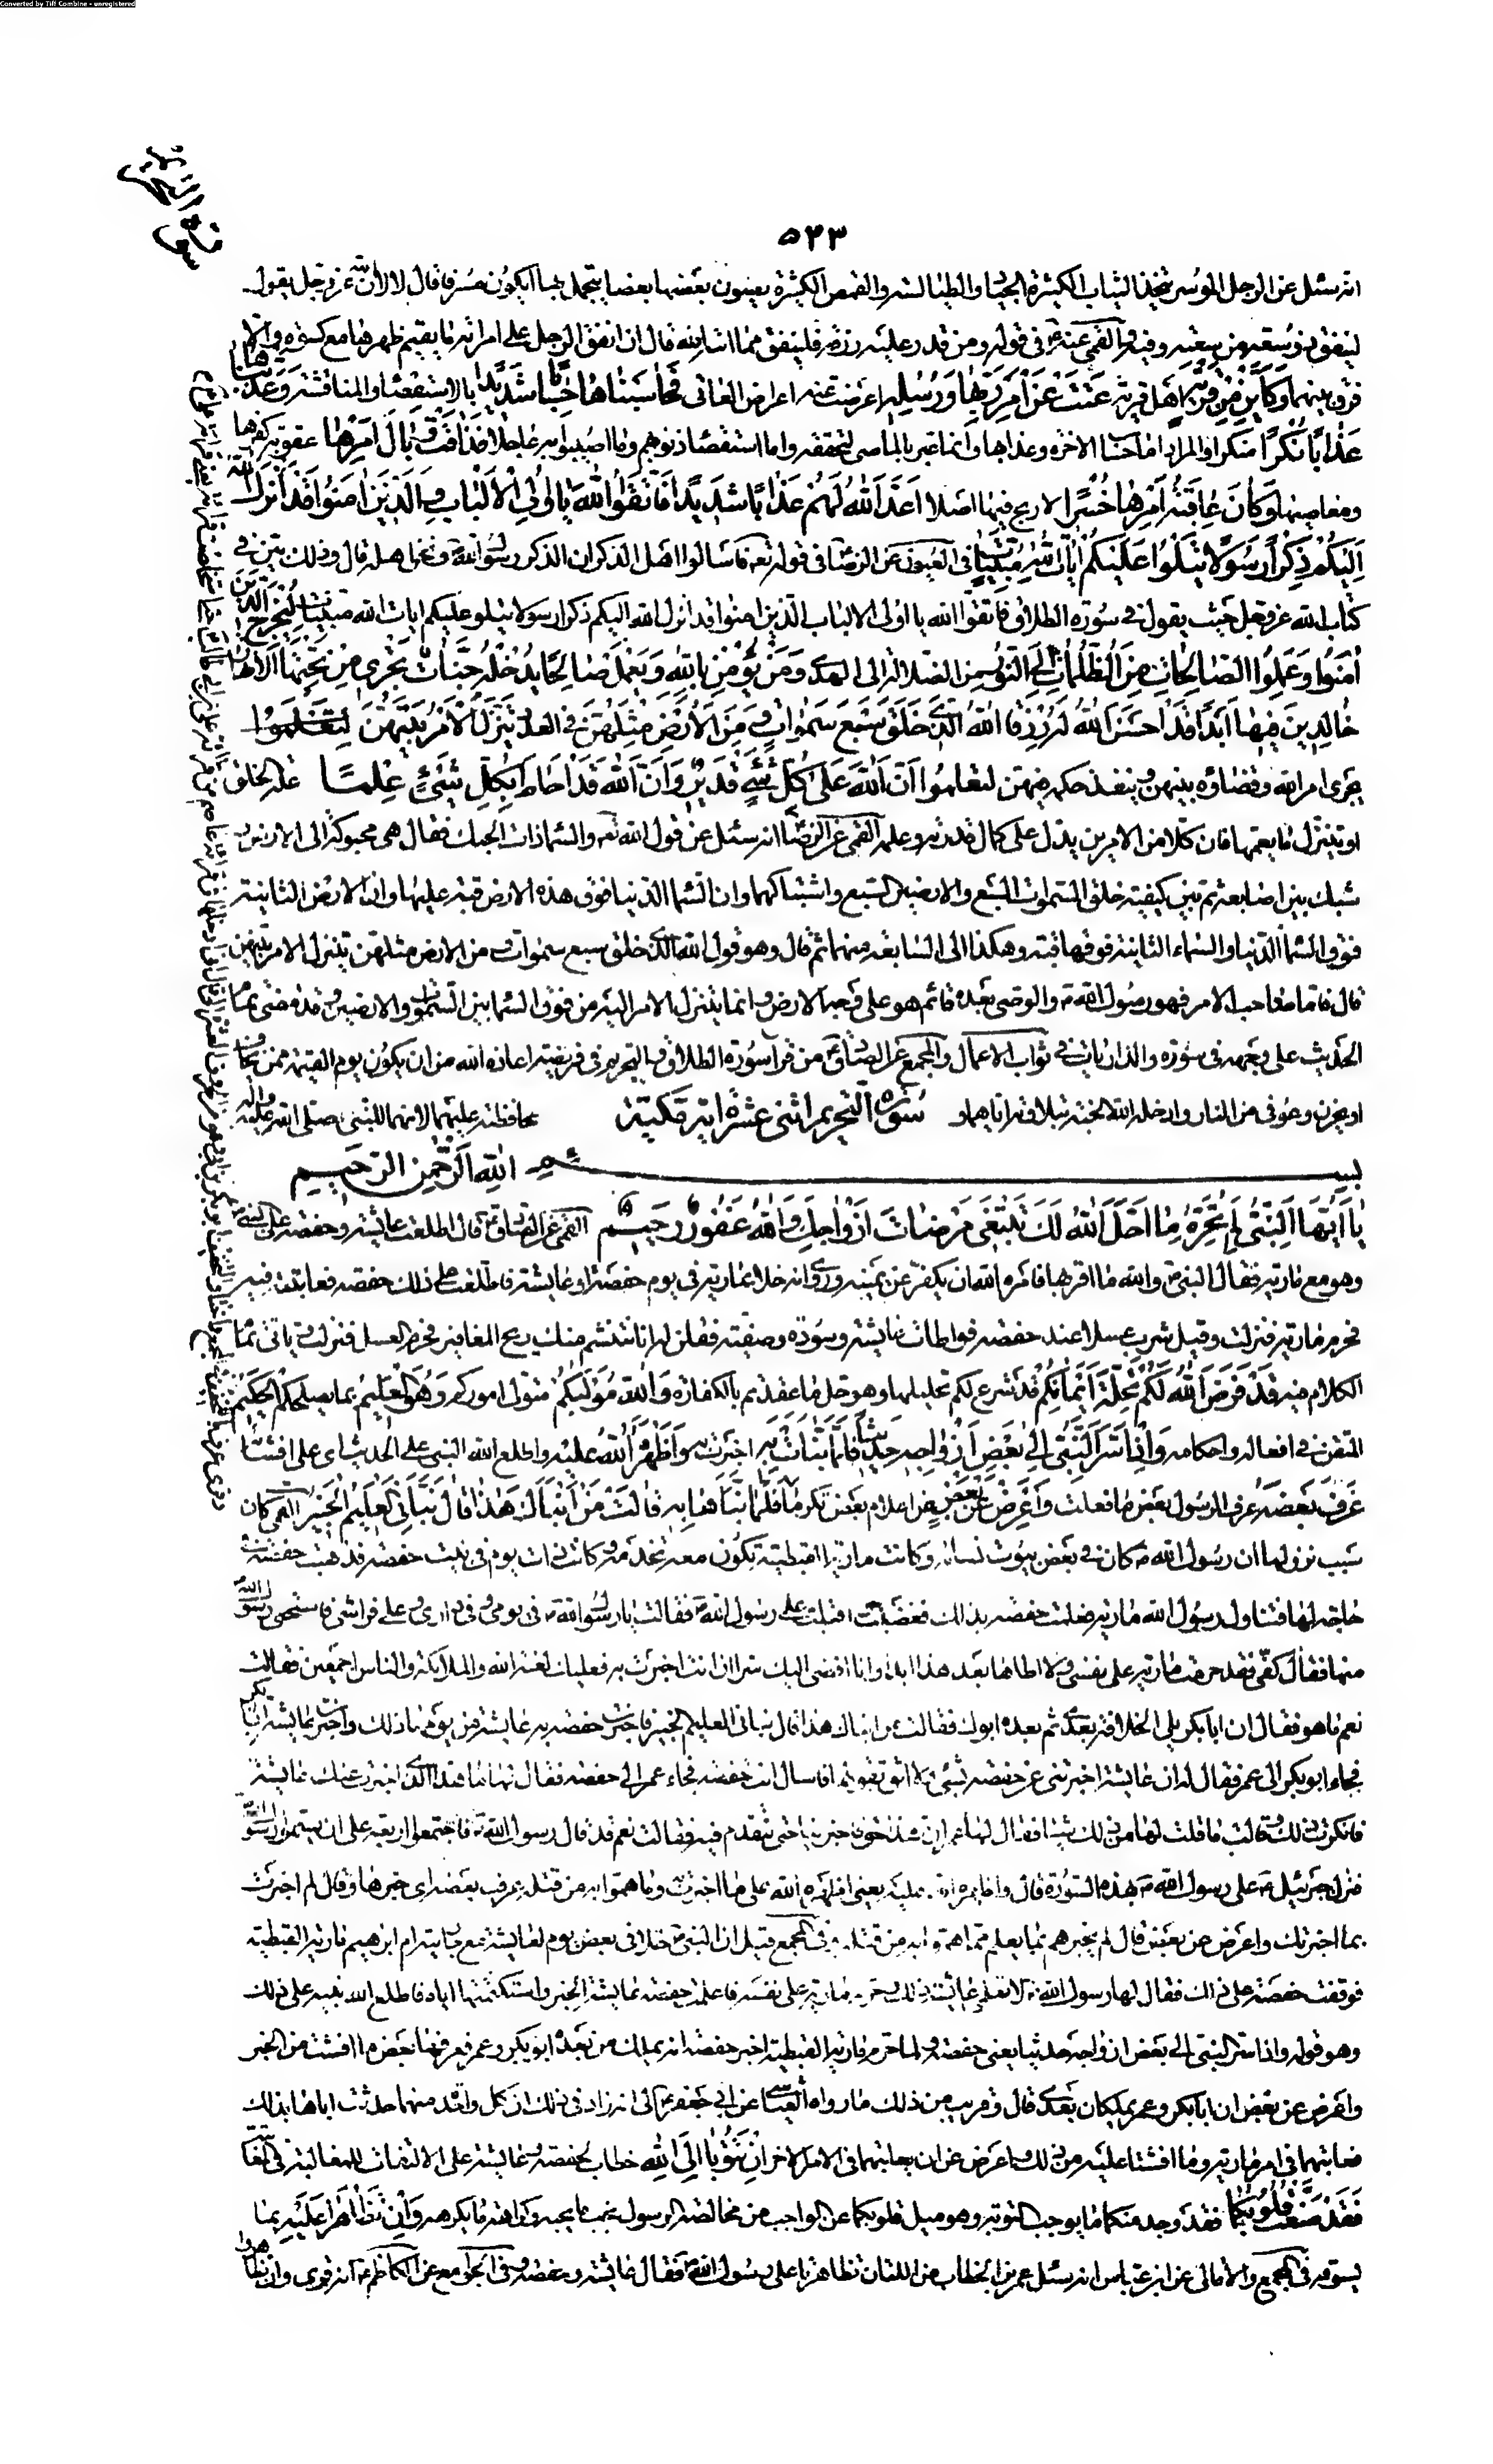 Converted by Tiff Combine - unregistered
سورة التحريم
٥٤٣
انه سئل عن الرجل الموسر يتخذ الثياب الكثيرة الجياد والطيالسة والقمص الكثيرة يصون بعضها بعضا يتجمل بها ايكون مسرفا قال لا لان الله عز وجل يقول
لينفق ذو سعة من سعته وفيه والقمي عنه في قوله ومن قدر عليه رزقه فلينفق مما اتاه الله قال ان انفق الرجل على امراته ما يقيم ظهرها مع كسوة والا
فرق بينهما وكاين من قرية اهل قرية عتت عن امر ربها ورسله اعرضت عنه اعراض العاتي فحاسبناها حسابا شديدا بالاستقصاء والمناقشة وعذبناها
عذابا نكرا منكرا والمراد اما حساب الاخرة وعذابها وانما عبر بالماضي لتحققه واما استقصاء ذنوبهم وما اصيبوا به عاجلا فذاقت وبال امرها عقوبة كفرها
ومعاصيها وكان عاقبة امرها خسرا لا ربح فيها اصلا اعد الله لهم عذابا شديدا فاتقوا الله يا اولي الالباب الذين امنوا قد انزل الله
اليكم ذكرا رسولا يتلوا عليكم ايات الله مبينات في العيون عن الرضا في قوله تعه فاسالوا اهل الذكر ان الذكر رسول الله ونحن اهله قال وذلك بين في
كتاب الله عز وجل حيث يقول في سورة الطلاق فاتقوا الله يا اولي الالباب الذين امنوا قد انزل الله اليكم ذكرا رسولا يتلو عليكم ايات الله مبينات ليخرج الذين
امنوا وعملوا الصالحات من الظلمات الى النور من الضلالة الى الهدى ومن يؤمن بالله ويعمل صالحا يدخله جنات تجري من تحتها الانهار
خالدين فيها ابدا قد احسن الله له رزقا الله الذي خلق سبع سموات ومن الارض مثلهن في العدد يتنزل الامر بينهن لتعلموا
يجري امر الله وقضاؤه بينهن وينفذ حكمه فيهن لتعلموا ان الله على كل شيء قدير وان الله قد احاط بكل شيء علما علة لخلق
او يتنزل ما يعمها فان كلا من الامرين يدل على كمال قدرته وعلمه القمي عن الرضا انه سئل عن قول الله تعه والسماء ذات الحبك فقال هي محبوكة الى الارض و
شبك بين اصابعه ثم بين كيفية خلق السموات السبع والارضين السبع واشتباكهما وان السماء الدنيا فوق هذه الارض قبة عليها وان الارض الثانية
فوق السماء الدنيا والسماء الثانية فوقها قبة وهكذا الى السابعة منهما ثم قال وهو قول الله الذي خلق سبع سموات ومن الارض مثلهن يتنزل الامر بينهن
قال فاما صاحب الامر فهو رسول الله والوصي بعده قائم هو على وجه الارض وانما يتنزل الامر اليه من فوق السماء بين السموات والارضين وقد مضى تمام
الحديث على وجهه في سورة والذاريات في ثواب الاعمال والمجمع عن الصادق من قرا سورة الطلاق والتحريم في فريضة اعاذه الله من ان يكون يوم القيمة ممن يخاف
او يحزن وعوفي من النار وادخله الله الجنة بتلاوته اياهما و محافظته عليهما لانهما للنبي صلى الله عليه واله
سورة التحريم اثنى عشرة اية مكية
بسم الله الرحمن الرحيم
يا ايها النبي لم تحرم ما احل الله لك تبتغي مرضات ازواجك والله غفور رحيم القمي عن الصادق قال اطلعت عايشة وحفصة على النبي
وهو مع مارية فقال النبي والله ما اقربها فامره الله ان يكفر عن يمينه وروي انه خلا بمارية في يوم حفصة او عايشة فاطلعت على ذلك حفصة فعاتبته فيه
فحرم مارية فنزلت وقيل شرب عسلا عند حفصة فواطات عايشة وسودة وصفية فقلن له انا نشم منك ريح المغافير فحرم العسل فنزلت وياتي تمام
الكلام فيه قد فرض الله لكم تحلة ايمانكم قد شرع لكم تحليلها وهو حل ما عقدتم بالكفارة والله موليكم متولى اموركم وهو العليم بما يصلحكم الحكيم
المتقن في افعاله واحكامه واذ اسر النبي الى بعض ازواجه حديثا فلما نبات به اخبرت به واظهره الله عليه واطلع الله النبي على الحديث اي على افشائه
عرف بعضه عرف الرسول بعض ما فعلت واعرض عن بعض عن اعلام بعض تكرما فلما نباها به قالت من انباك هذا قال نباني العليم الخبير القمي كان
سبب نزولها ان رسول الله كان في بعض بيوت نسائه وكانت مارية القبطية تكون معه تخدمه وكانت ذات يوم في بيت حفصة فذهبت حفصة في
حاجة لها فتناول رسول الله مارية فعلمت حفصة بذلك فغضبت واقبلت على رسول الله فقالت يا رسول الله في يومي وفي داري وعلى فراشي فاستحيى رسول الله
منها فقال كفي فقد حرمت مارية على نفسي ولا اطاها بعد هذا ابدا وانا افضي اليك سرا ان انت اخبرت به فعليك لعنة الله والملائكة والناس اجمعين فقالت
نعم ما هو فقال ان ابا بكر يلي الخلافة بعدي ثم بعده ابوك فقالت من انباك هذا قال نباني العليم الخبير فاخبرت حفصة به عايشة من يومها ذلك واخبرت عايشة ابا بكر
فجاء ابو بكر الى عمر فقال له ان عايشة اخبرتني عن حفصة بشيء ولا اثق بقولها فاسال انت حفصة فجاء عمر الى حفصة فقال لها ما هذا الذي اخبرت عنك عايشة
فانكرت ذلك وقالت ما قلت لها من ذلك شيئا فقال لها عمر ان هذا حق فاخبرينا حتى نتقدم فيه فقالت نعم قد قال رسول الله فاجتمعوا اربعة على ان يسموا رسول الله
فنزل جبرئيل على رسول الله بهذه السورة قال واظهره الله عليه يعني اظهره الله على ما اخبرت به وما هموا به من قتله عرف بعضه اي خبرها وقال لم اخبرت
بما اخبرتك واعرض عن بعض قال لم يخبرهم بما يعلم مما هموا به من قتله وفي المجمع قيل ان النبي خلا في بعض يوم لعايشة مع جاريته ام ابرهيم مارية القبطية
فوقفت حفصة على ذلك فقال لها رسول الله لا تعلمي عايشة ذلك وحرم مارية على نفسه فاعلمت حفصة عايشة الخبر واستكتمتها اياه فاطلع الله نبيه على ذلك
وهو قوله واذ اسر النبي الى بعض ازواجه حديثا يعني حفصة ولما حرم مارية القبطية اخبر حفصة انه يملك من بعده ابو بكر وعمر فعرفها بعض ما افشت من الخبر
واعرض عن بعض ان ابا بكر وعمر يملكان بعدي قال وقريب من ذلك ما رواه العياشي عن ابي جعفر الا انه زاد في ذلك ان كل واحدة منهما حدثت اباها بذلك
فعاتبهما في امر مارية وما افشتا عليه من ذلك واعرض عن ان يعاتبهما في الامر الاخر ان تتوبا الى الله خطاب لحفصة وعايشة على الالتفات للمبالغة في العتاب
فقد صغت قلوبكما فقد وجد منكما ما يوجب التوبة وهو ميل قلوبكما عن الواجب من مخالصة الرسول بحب ما يحبه وكراهة ما يكرهه وان تظاهرا عليه بما
يسوؤه في المجمع والامالي عن ابن عباس انه سئل عمر بن الخطاب من اللتان تظاهرتا على رسول الله فقال عايشة وحفصة وفي الجوامع عن الكاظم انه قرئ وان تظاهروا